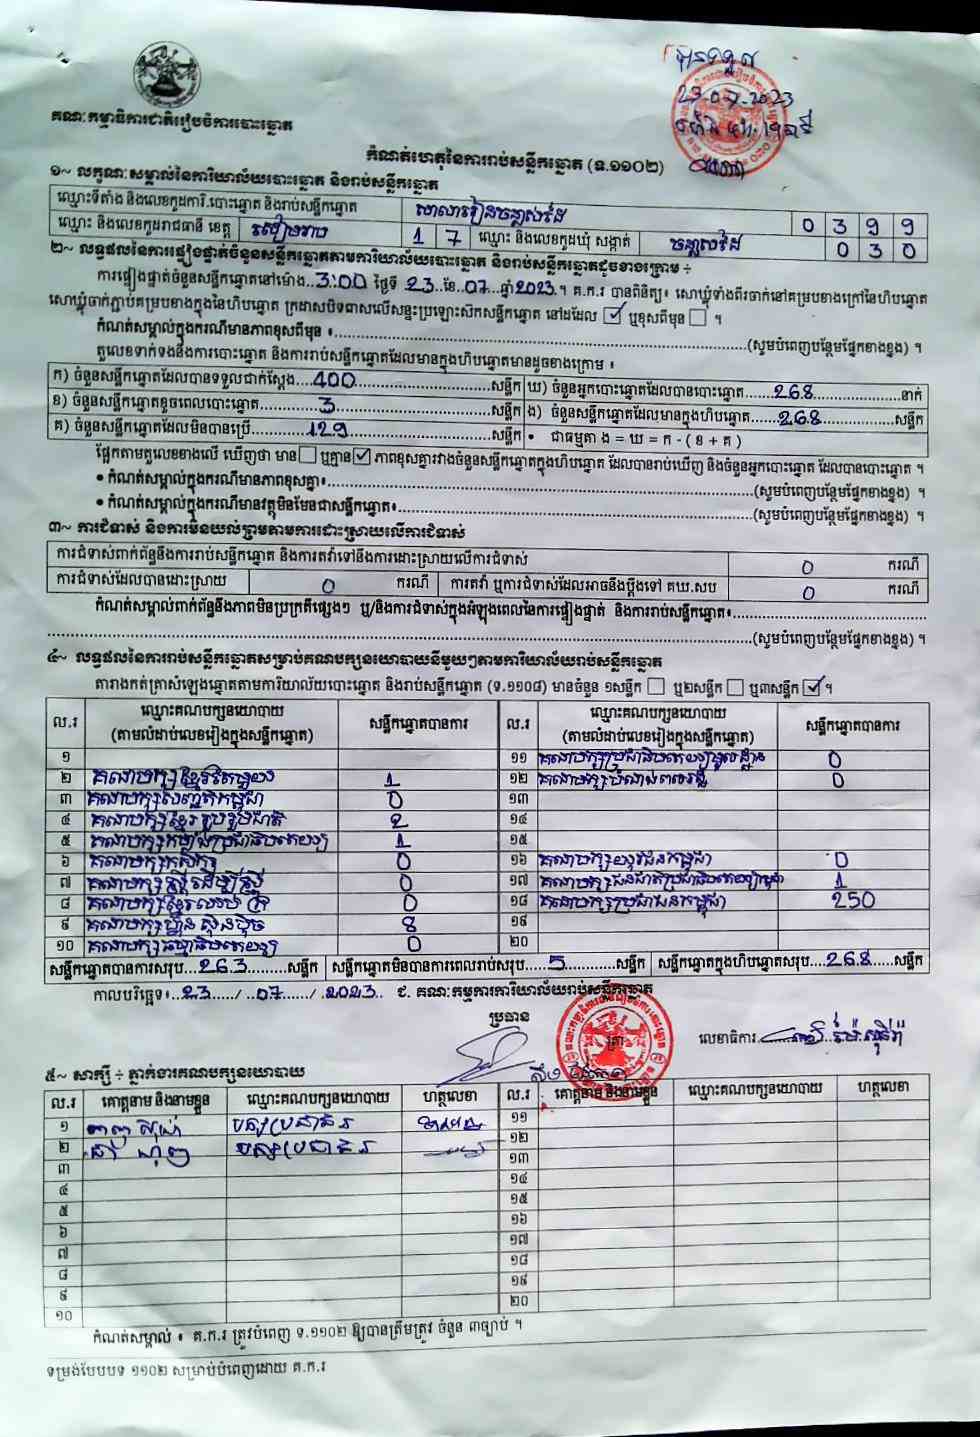 បានទទួល
23-07-2023
គណៈកម្មាធិការជាតិរៀបចំការបោះឆ្នោត
កំណត់ហេតុនៃការរាប់សន្លឹកឆ្នោត (ទ.១១០២)
១~ លក្ខណៈសម្គាល់នៃការិយាល័យបោះឆ្នោត និងរាប់សន្លឹកឆ្នោត
ឈ្មោះទីតាំង និងលេខកូដការិ.បោះឆ្នោត និងរាប់សន្លឹកឆ្នោត សាលារៀនចន្លាស់ដៃ 0 3 9 9
ឈ្មោះ និងលេខកូដរាជធានី ខេត្ត សៀមរាប 1 7 ឈ្មោះ និងលេខកូដឃុំ សង្កាត់ ចន្លាស់ដៃ 0 3 0
២~ លទ្ធផលនៃការផ្ទៀងផ្ទាត់ចំនួនសន្លឹកឆ្នោតតាមការិយាល័យបោះឆ្នោត និងរាប់សន្លឹកឆ្នោតដូចខាងក្រោម ÷
ការផ្ទៀងផ្ទាត់ចំនួនសន្លឹកឆ្នោតនៅម៉ោង..3:00 ថ្ងៃទី 23..ខែ..07...ឆ្នាំ2023.។ គ.ក.រ បានពិនិត្យ៖ សោឃ្លុំទាំងពីរចាក់នៅគម្របខាងក្រៅនៃហិបឆ្នោត
សោឃ្លុំចាក់ភ្ជាប់គម្របខាងក្នុងនៃហិបឆ្នោត ក្រដាសបិទជាសលើសន្ទះប្រឡោះស៊កសន្លឹកឆ្នោត នៅដដែល ☑ ឬខុសពីមុន ☐ ។
កំណត់សម្គាល់ក្នុងករណីមានភាពខុសពីមុន ៖...(សូមបំពេញបន្ថែមផ្នែកខាងខ្នង) ។
តួលេខទាក់ទងនឹងការបោះឆ្នោត និងការរាប់សន្លឹកឆ្នោតដែលមានក្នុងហិបឆ្នោតមានដូចខាងក្រោម ៖
ក) ចំនួនសន្លឹកឆ្នោតដែលបានទទួលជាក់ស្តែង....400....សន្លឹក ឃ) ចំនួនអ្នកបោះឆ្នោតដែលបានបោះឆ្នោត....268....នាក់
ខ) ចំនួនសន្លឹកឆ្នោតខូចពេលបោះឆ្នោត....3....សន្លឹក ង) ចំនួនសន្លឹកឆ្នោតដែលមានក្នុងហិបឆ្នោត....268....សន្លឹក
គ) ចំនួនសន្លឹកឆ្នោតដែលមិនបានប្រើ....129....សន្លឹក • ជាធម្មតា ង = ឃ = ក - ( ខ + គ )
ផ្អែកតាមតួលេខខាងលើ ឃើញថា មាន ☐ ឬគ្មាន ☑ ភាពខុសគ្នារវាងចំនួនសន្លឹកឆ្នោតក្នុងហិបឆ្នោត ដែលបានរាប់ឃើញ និងចំនួនអ្នកបោះឆ្នោត ដែលបានបោះឆ្នោត ។
• កំណត់សម្គាល់ក្នុងករណីមានភាពខុសគ្នា៖...(សូមបំពេញបន្ថែមផ្នែកខាងខ្នង) ។
• កំណត់សម្គាល់ក្នុងករណីមានវត្ថុមិនមែនជាសន្លឹកឆ្នោត៖...(សូមបំពេញបន្ថែមផ្នែកខាងខ្នង) ។
៣~ ការជំទាស់ និងការមិនយល់ព្រមតាមការដោះស្រាយលើការជំទាស់
ការជំទាស់ពាក់ព័ន្ធនឹងការរាប់សន្លឹកឆ្នោត និងការតវ៉ាទៅនឹងការដោះស្រាយលើការជំទាស់ 0 ករណី
ការជំទាស់ដែលបានដោះស្រាយ 0 ករណី ការតវ៉ា ឬការជំទាស់ដែលអាចនឹងប្តឹងទៅ គឃ.សប 0 ករណី
កំណត់សម្គាល់ពាក់ព័ន្ធនឹងភាពមិនប្រក្រតីផ្សេងៗ ឬ/និងការជំទាស់ក្នុងអំឡុងពេលនៃការផ្ទៀងផ្ទាត់ និងការរាប់សន្លឹកឆ្នោត៖...
...(សូមបំពេញបន្ថែមផ្នែកខាងខ្នង) ។
៤~ លទ្ធផលនៃការរាប់សន្លឹកឆ្នោតសម្រាប់គណបក្សនយោបាយនីមួយៗតាមការិយាល័យរាប់សន្លឹកឆ្នោត
តារាងកត់ត្រាសំឡេងឆ្នោតតាមការិយាល័យបោះឆ្នោត និងរាប់សន្លឹកឆ្នោត (ទ.១១០៨) មានចំនួន ១សន្លឹក ☐ ឬ២សន្លឹក ☐ ឬ៣សន្លឹក ☑ ។
ល.រ ឈ្មោះគណបក្សនយោបាយ (តាមលំដាប់លេខរៀងក្នុងសន្លឹកឆ្នោត) សន្លឹកឆ្នោតបានការ ល.រ ឈ្មោះគណបក្សនយោបាយ (តាមលំដាប់លេខរៀងក្នុងសន្លឹកឆ្នោត) សន្លឹកឆ្នោតបានការ
១ ១១ គណបក្សប្រជាធិបតេយ្យមូលដ្ឋាន 0
២ គណបក្សខ្មែរតែមួយ 1 ១២ គណបក្សបំណងពលរដ្ឋ 0
៣ គណបក្សសញ្ជាតិកម្ពុជា 0 ១៣
៤ គណបក្សខ្មែររួបរួមជាតិ 2 ១៤
៥ គណបក្សកម្លាំងប្រជាធិបតេយ្យ 1 ១៥
៦ គណបក្សកសិករ 0 ១៦ គណបក្សយុវជនកម្ពុជា 0
៧ គណបក្សស្ត្រីដើម្បីស្ត្រី 0 ១៧ គណបក្សជនជាតិប្រជាធិបតេយ្យកម្ពុជា 1
៨ គណបក្សខ្មែរឈប់ក្រ 0 ១៨ គណបក្សប្រជាជនកម្ពុជា 250
៩ គណបក្សហ្វ៊ុនស៊ិនប៉ិច 8 ១៩
១០ គណបក្សធម្មាធិបតេយ្យ 0 ២០
សន្លឹកឆ្នោតបានការសរុប...263...សន្លឹក សន្លឹកឆ្នោតមិនបានការពេលរាប់សរុប....5....សន្លឹក សន្លឹកឆ្នោតក្នុងហិបឆ្នោតសរុប...268...សន្លឹក
កាលបរិច្ឆេទ៖..23..../..07..../.2023.. ជ. គណៈកម្មការការិយាល័យរាប់សន្លឹកឆ្នោត
ប្រធាន ត្រា លេខាធិការ
៥~ សាក្សី ÷ ភ្នាក់ងារគណបក្សនយោបាយ
ល.រ គោត្តនាម និងនាមខ្លួន ឈ្មោះគណបក្សនយោបាយ ហត្ថលេខា ល.រ គោត្តនាម និងនាមខ្លួន ឈ្មោះគណបក្សនយោបាយ ហត្ថលេខា
១ បក្សប្រជាជន ១១
២ បក្សប្រជាជន ១២
៣ ១៣
៤ ១៤
៥ ១៥
៦ ១៦
៧ ១៧
៨ ១៨
៩ ១៩
១០ ២០
កំណត់សម្គាល់ ៖ គ.ក.រ ត្រូវបំពេញ ទ.១១០២ ឱ្យបានត្រឹមត្រូវ ចំនួន ៣ច្បាប់ ។
ទម្រង់បែបបទ ១១០២ សម្រាប់បំពេញដោយ គ.ក.រ